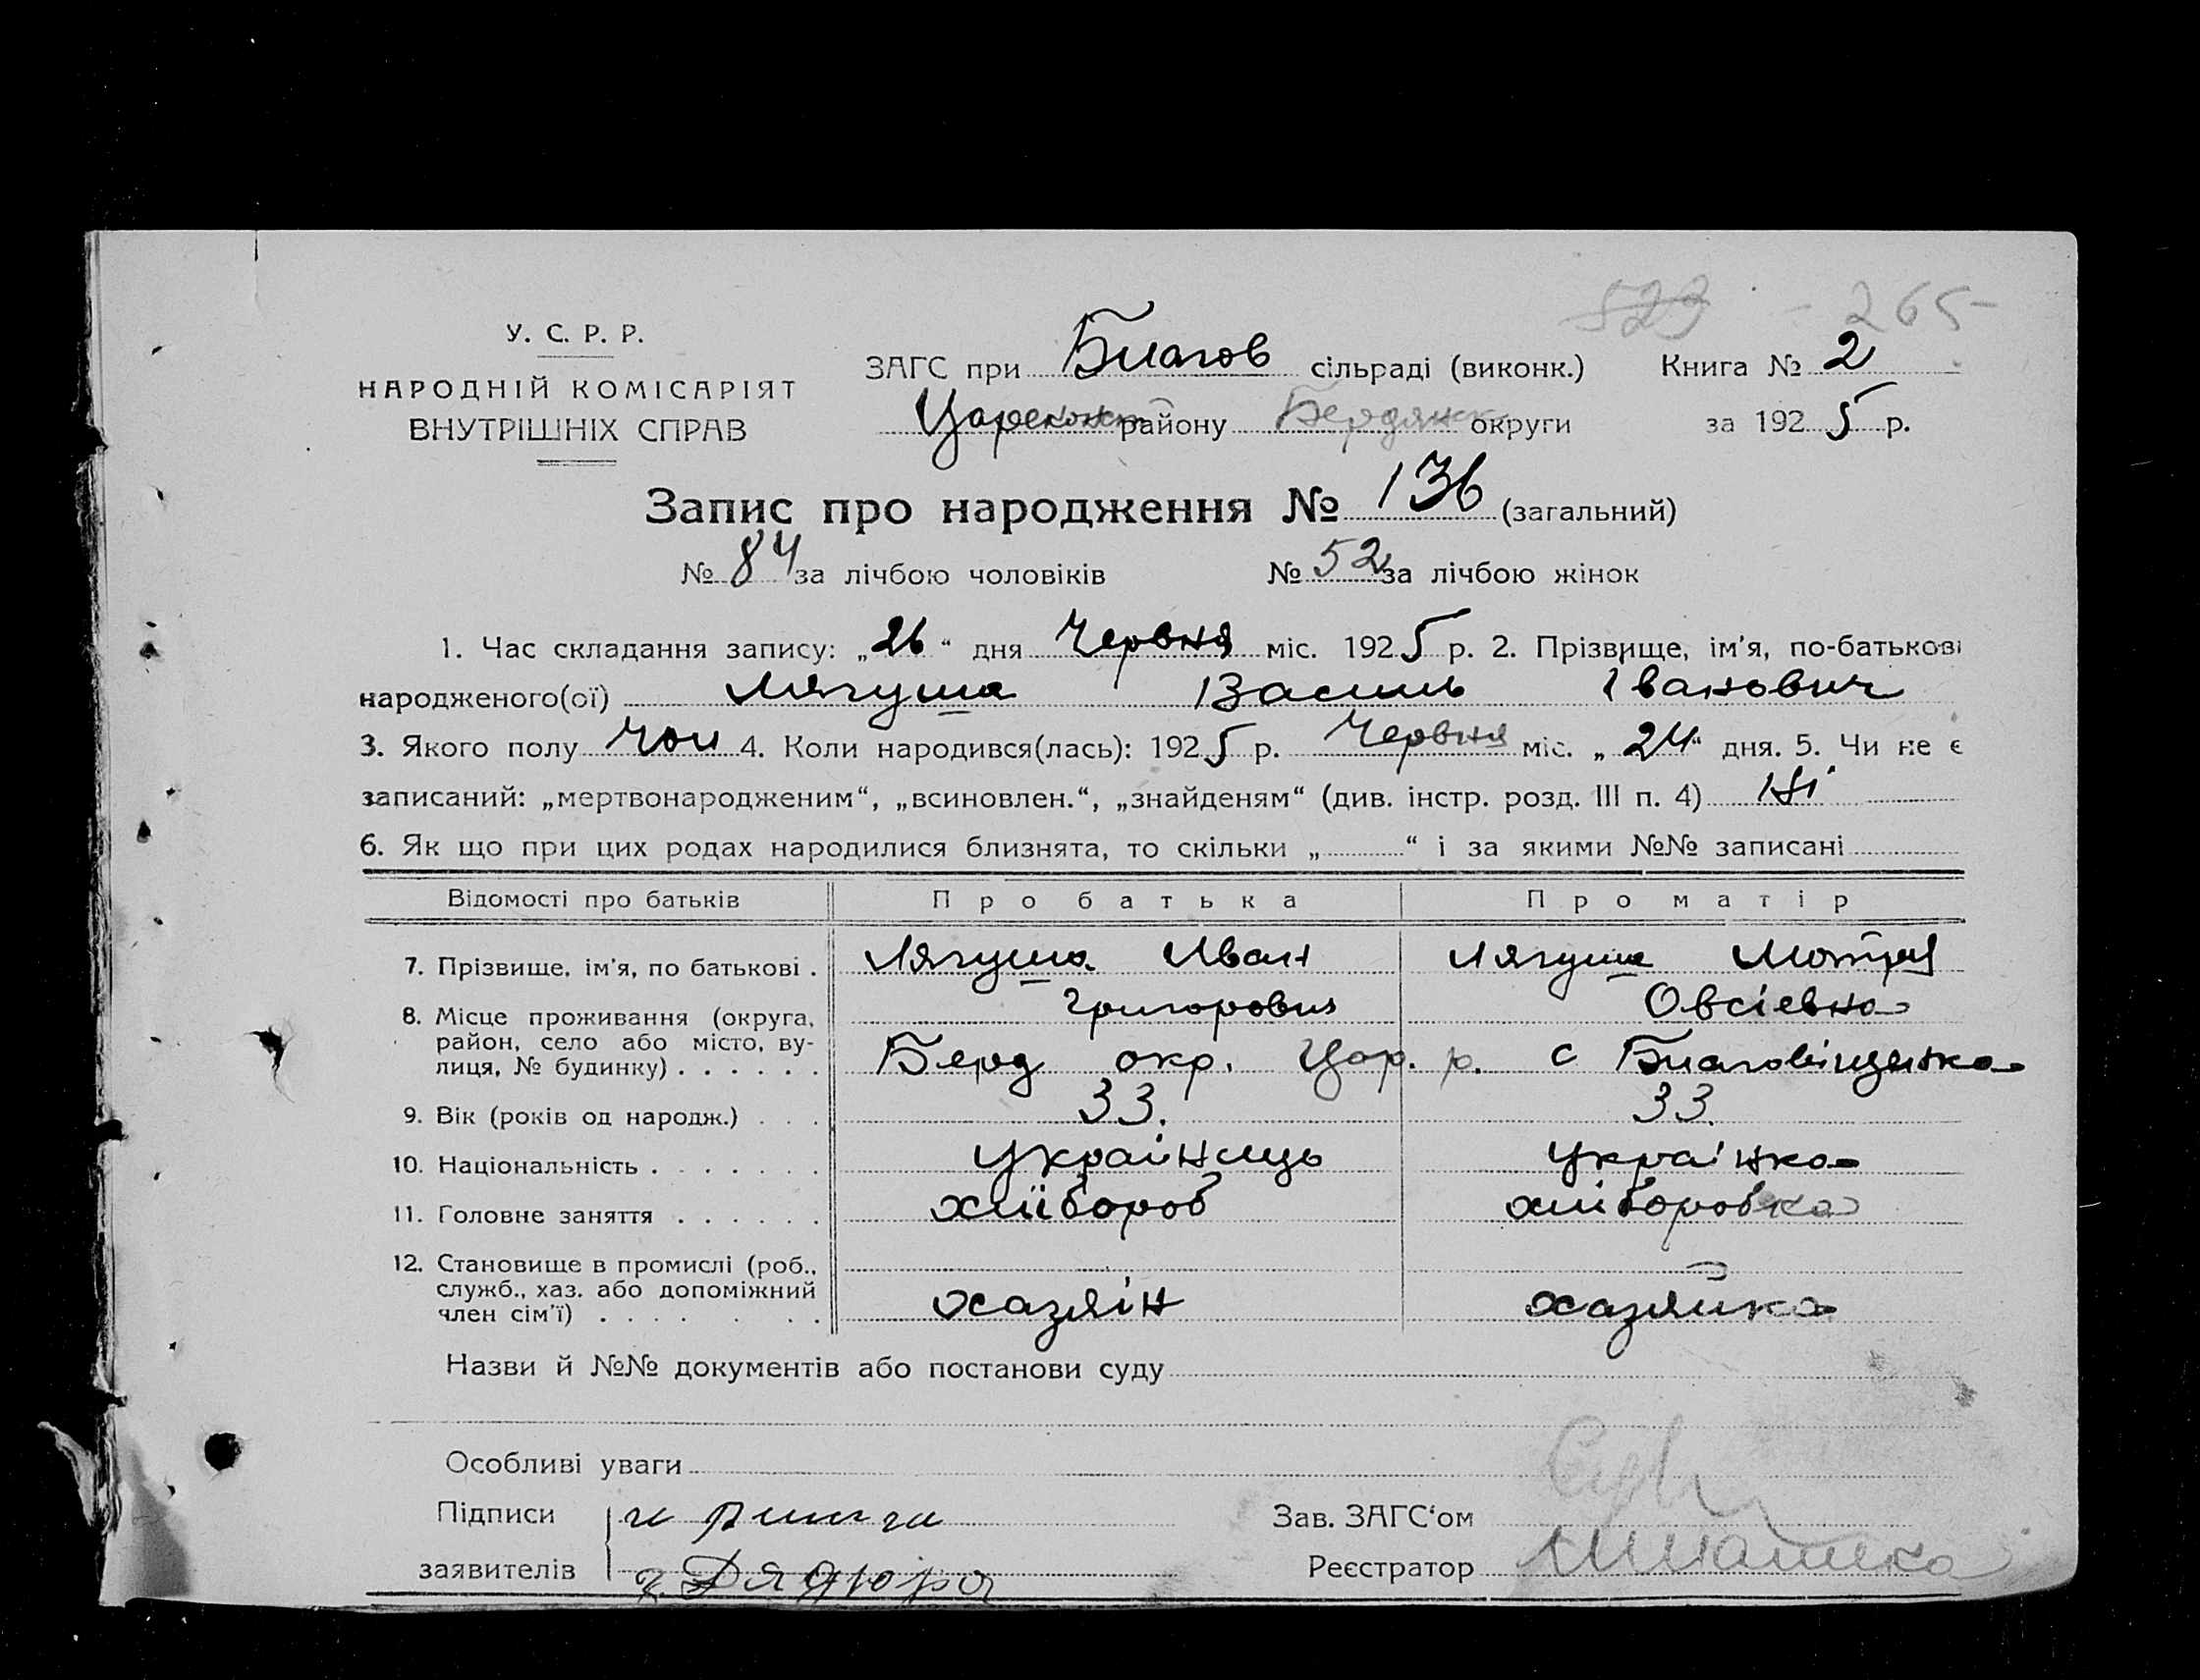 523 - 265
У. С. Р. Р.
НАРОДНІЙ КОМІСАРІЯТ
ВНУТРІШНІХ СПРАВ
ЗАГС при Благов сільраді (виконк.) Книга № 2
Цареконк району Бердянк округи за 1925 р.
Запис про народження № 136 (загальний)
№ 84 за лічбою чоловіків № 52 за лічбою жінок
1. Час складання запису: „26“ дня Червня міс. 1925 р. 2. Прізвище, ім'я, по-батькові
народженого(ої) Лягуша Василь Іванович
3. Якого полу чол 4. Коли народився(лась): 1925 р. Червня міс. „24“ дня. 5. Чи не є
записаний: „мертвонародженим“, „всиновлен.“, „знайденям“ (див. інстр. розд. III п. 4) Ні
6. Як що при цих родах народилися близнята, то скільки „ “ і за якими №№ записані
Відомості про батьків Про батька Про матір
7. Прізвище, ім'я, по батькові . Лягуша Иван Лягуша Мотря
Григорович Овсієвна
8. Місце проживання (округа,
район, село або місто, ву-
лиця, № будинку) . . . . . . Берд окр. Цар. р. с Благовіщенка
9. Вік (років од народж.) . . . 33. 33.
10. Національність . . . . . . . Українець Українка
11. Головне заняття . . . . . . хлібороб хліборобка
12. Становище в промислі (роб.,
служб., хаз. або допоміжний
член сім'ї) . . . . . . . хазяїн хазяйка
Назви й №№ документів або постанови суду
Особливі уваги
Підписи
Зав. ЗАГС‘ом
заявителів
Реєстратор